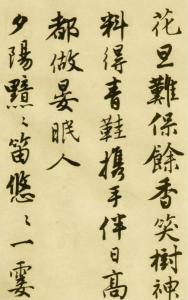 花旦難保餘香笑樹神
料得青鞋攜手伴日高
都做晏眠人
夕陽黯黯笛悠悠一霎